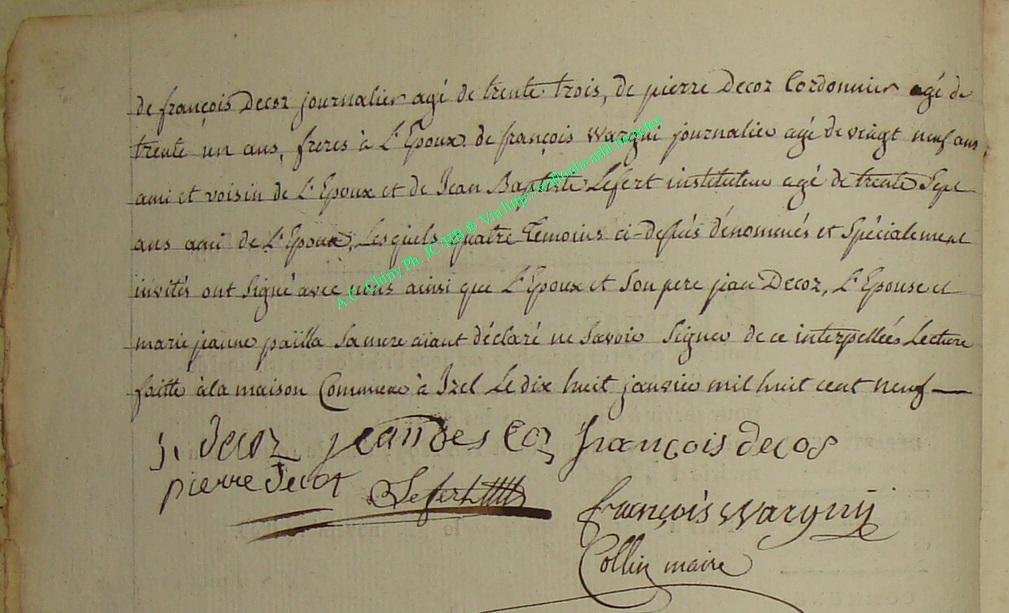 de françois Decoz journalier agé de trente trois, de pierre Decoz Cordonnier agé de
trente un ans, freres à L'Epoux, de françois Wargni journalier agé de vingt neuf ans,
ami et voisin de L'Epoux et de Jean Baptiste Lefert instituteur agé de trente Sept
ans ami de L'Epoux, Lesquels quatre Temoins ci-dessus dénommés et Spécialement
invités ont Signé avec nous ainsi que L'Epoux et Son pere jean Decoz, L'Epouse et
marie jeanne païlla Sa mere aiant déclaré ne Savoir Signer de ce interpellées Lecture
faitte à la maison Commune à Izel Le dix huit janvier mil huit cent neuf
j. decoz jean des coz françois decos
pierre decoz Lefert
françois Wargnij
Collin maire
A.C. Chiny Ph. JC MB @ Via